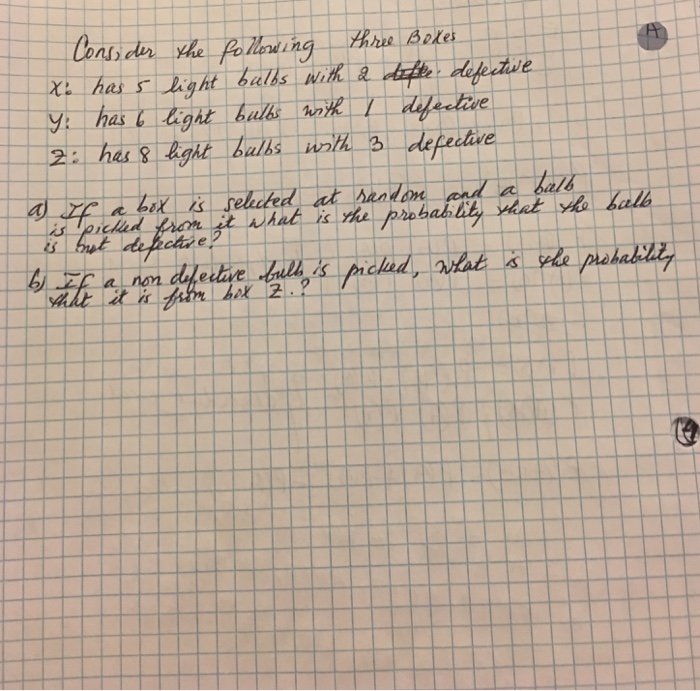 Consider the following three Boxes
X: has 5 light bulbs with 2 defective
y: has 6 light bulbs with 1 defective
Z: has 8 light bulbs with 3 defective
a) If a box is selected at random and a bulb
is picked from it what is the probability that the bulb
is defective?
b) If a non defective bulb is picked, what is the probability
that it is from box Z.?